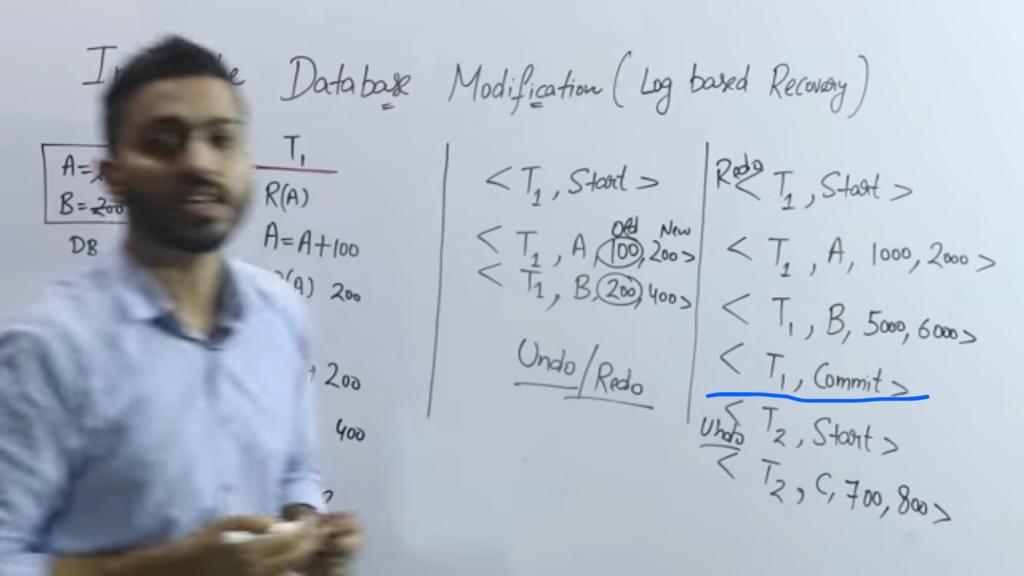 Database Modification (Log based Recovery)
A=
B=200
DB
T1
R(A)
A=A+100
(A) 200
+ 200
400
<T1, Start>
Old New
<T1, A, 100, 200>
<T1, B, 200, 400>
Undo/Redo
Redo
<T1, Start>
<T1, A, 1000, 2000>
<T1, B, 5000, 6000>
<T1, Commit>
<T2, Start>
Undo
<T2, C, 700, 800>